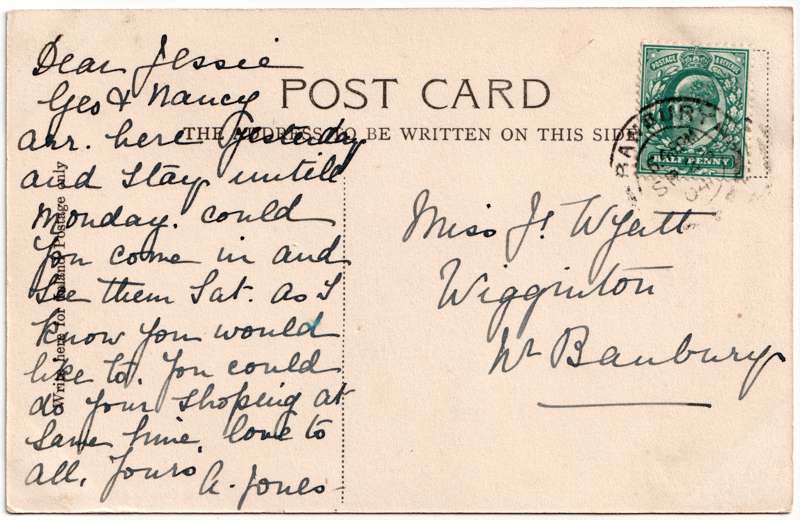 Dear Jessie
Geo & Nancy
arr. here yesterday
and stay untill
Monday. could
you come in and
see them Sat. as I
know you would
like to. You could
do your shopping at
same time. love to
all, Yours A. Jones
POST CARD
THE ADDRESS TO BE WRITTEN ON THIS SIDE
Write here for Inland Postage only
POSTAGE & REVENUE
HALF PENNY
BANBURY
SP
04
Miss J. Wyatt
Wigginton
Nr Banbury